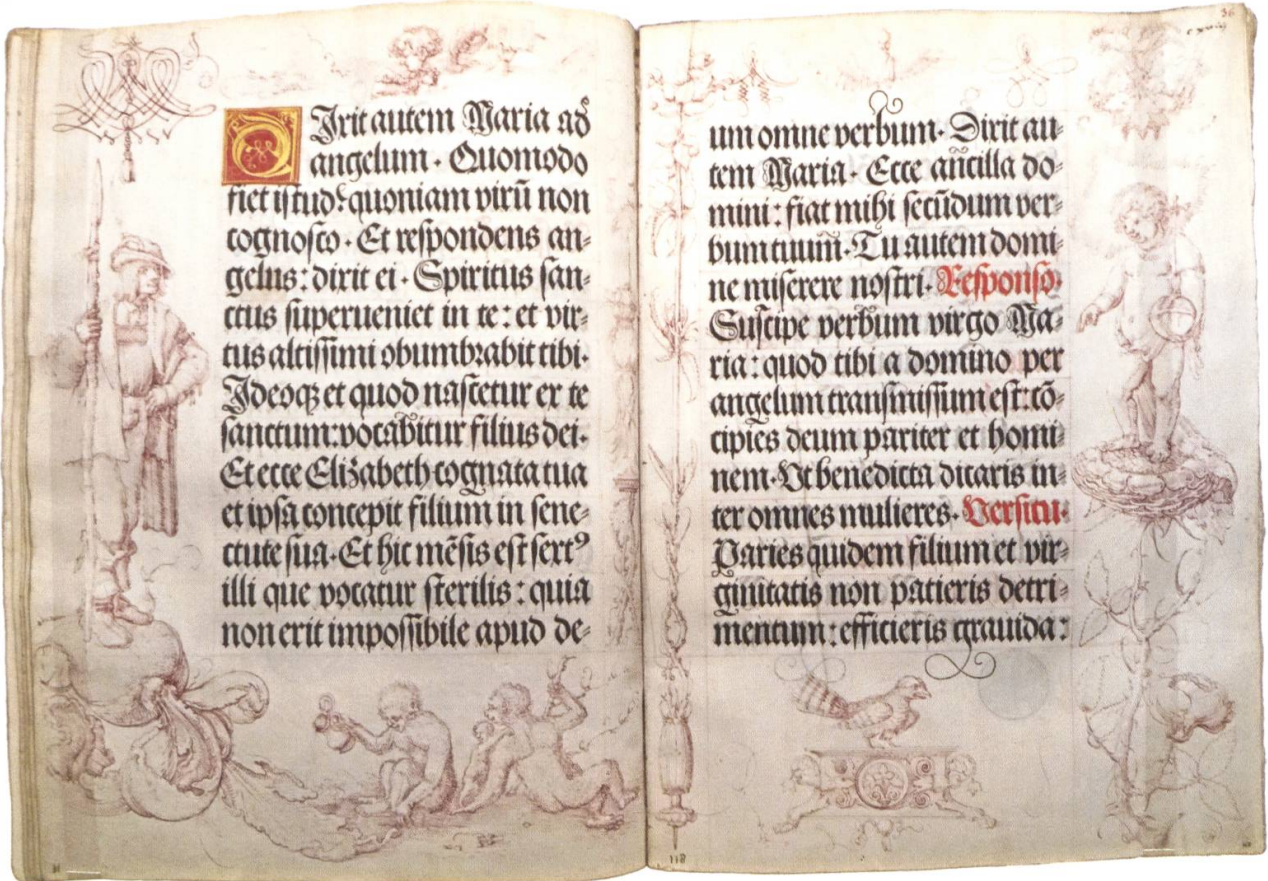 Dixit autem Maria ad
angelum. Quomodo
fiet istud? quoniam virū non
cognosco. Et respondens an=
gelus: dixit ei. Spiritus san=
ctus superueniet in te: et vir=
tus altissimi obumbrabit tibi.
Ideoqꝫ et quod nascetur ex te
sanctum: vocabitur filius dei.
Et ecce Elizabeth cognata tua
et ipsa concepit filium in sene=
ctute sua. Et hic mēsis est sextꝰ
illi que vocatur sterilis: quia
non erit impossibile apud de=
um omne verbum. Dixit au=
tem Maria. Ecce ancilla do=
mini: fiat mihi secūdum ver=
bum tuum. Tu autem domi=
ne miserere nostri. Responso.
Suscipe verbum virgo Ma=
ria: quod tibi a domino per
angelum transmissum est: cō=
cipies deum pariter et homi=
nem. Vt benedicta dicaris in=
ter omnes mulieres. Versicu.
Paries quidem filium et vir=
ginitatis non patieris detri=
mentum: efficieris grauida:
118
36